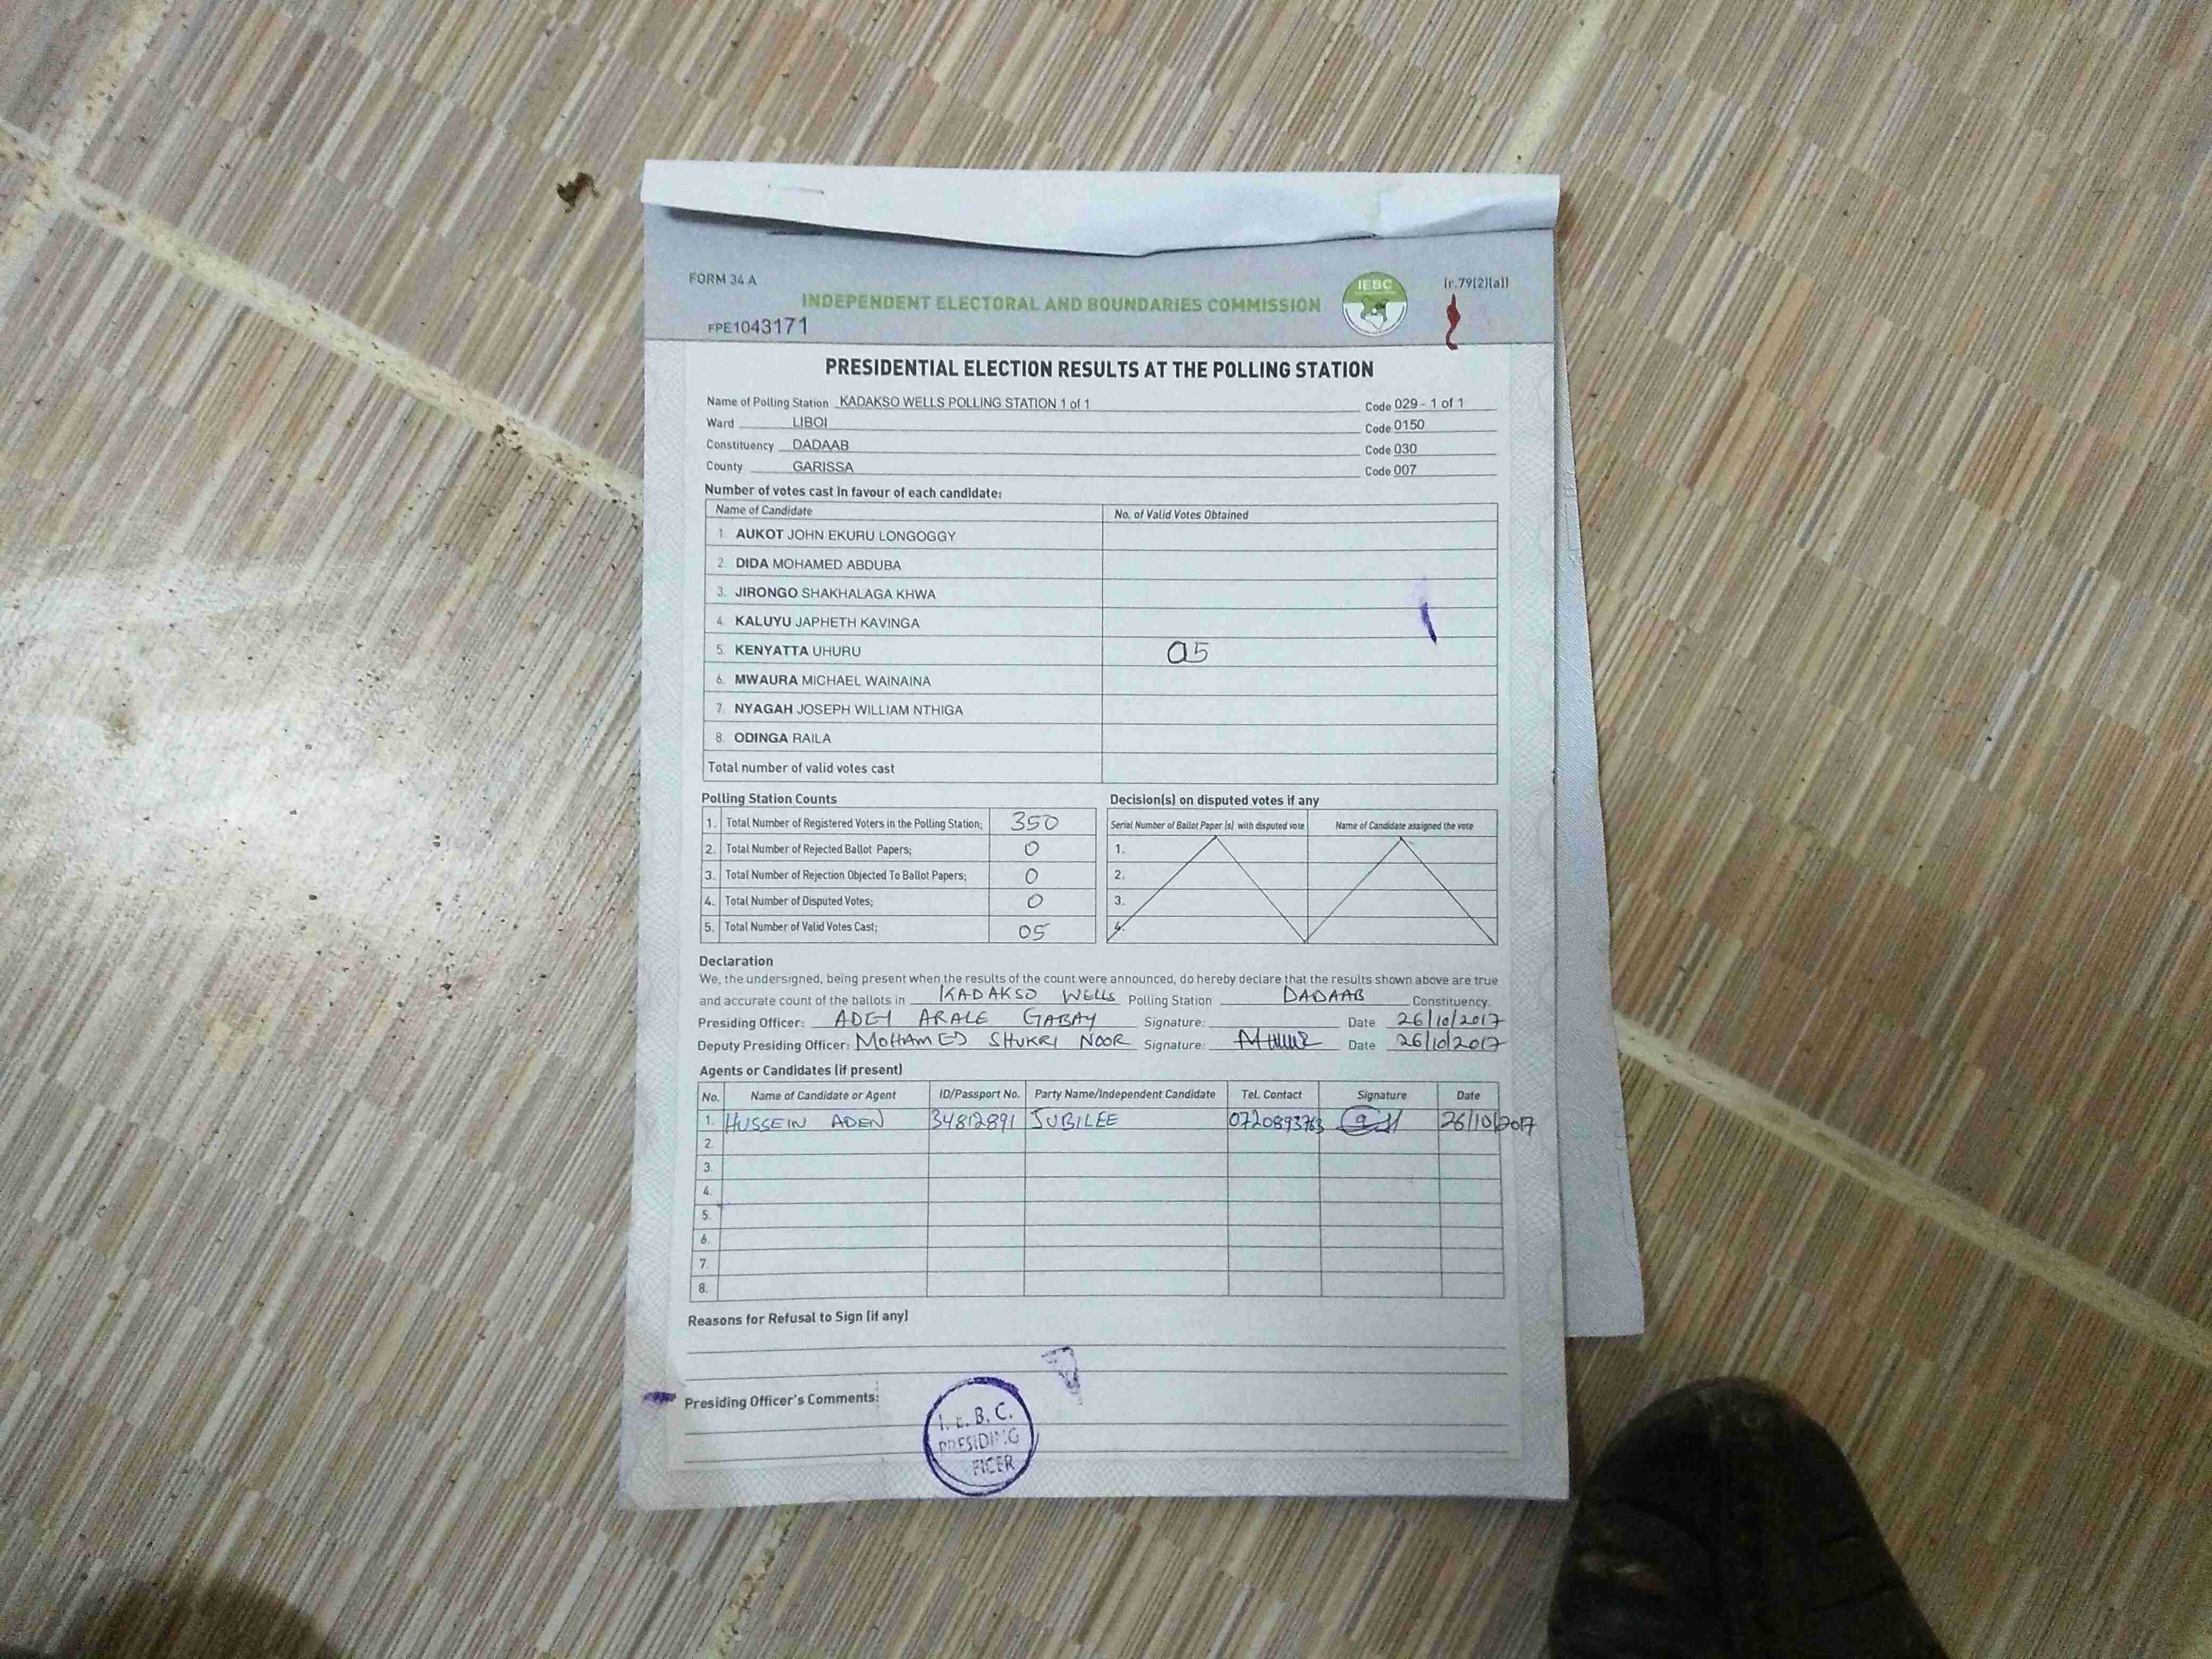 FORM 34 A
(r.79(2)(a))
IEBC
INDEPENDENT ELECTORAL AND BOUNDARIES COMMISSION
FPE1043171
PRESIDENTIAL ELECTION RESULTS AT THE POLLING STATION
Name of Polling Station KADAKSO WELLS POLLING STATION 1 of 1 Code 029 - 1 of 1
Ward LIBOI Code 0150
Constituency DADAAB Code 030
County GARISSA Code 007
Number of votes cast in favour of each candidate:
Name of Candidate No. of Valid Votes Obtained
1. AUKOT JOHN EKURU LONGOGGY
2. DIDA MOHAMED ABDUBA
3. JIRONGO SHAKHALAGA KHWA
4. KALUYU JAPHETH KAVINGA
5. KENYATTA UHURU 05
6. MWAURA MICHAEL WAINAINA
7. NYAGAH JOSEPH WILLIAM NTHIGA
8. ODINGA RAILA
Total number of valid votes cast
Polling Station Counts
1. Total Number of Registered Voters in the Polling Station; 350
2. Total Number of Rejected Ballot Papers; 0
3. Total Number of Rejection Objected To Ballot Papers; 0
4. Total Number of Disputed Votes; 0
5. Total Number of Valid Votes Cast; 05
Decision(s) on disputed votes if any
Serial Number of Ballot Paper (s) with disputed vote Name of Candidate assigned the vote
1.
2.
3.
4.
Declaration
We, the undersigned, being present when the results of the count were announced, do hereby declare that the results shown above are true
and accurate count of the ballots in KADAKSO WELLS Polling Station DADAAB Constituency.
Presiding Officer: ADEY ARALE GABAY Signature: Date 26/10/2017
Deputy Presiding Officer: MOHAMED SHUKRI NOOR Signature: Date 26/10/2017
Agents or Candidates (if present)
No. Name of Candidate or Agent ID/Passport No. Party Name/Independent Candidate Tel. Contact Signature Date
1. HUSSEIN ADEN 34812891 JUBILEE 0720893763 26/10/2017
2.
3.
4.
5.
6.
7.
8.
Reasons for Refusal to Sign (if any)
Presiding Officer's Comments:
I.E.B.C.
PRESIDING
FICER